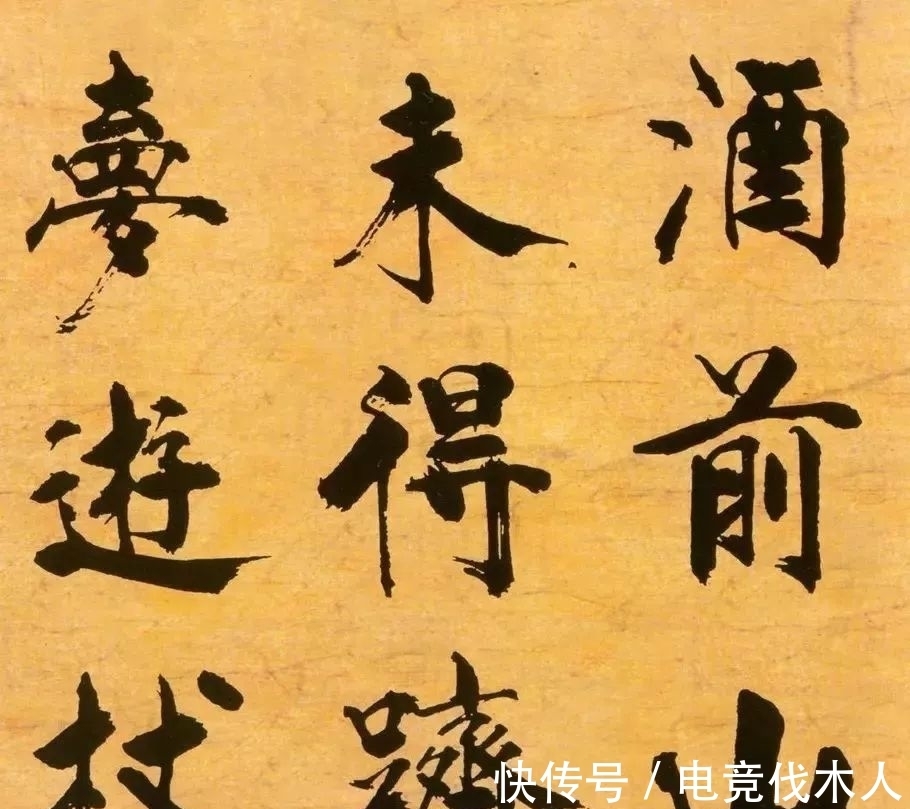 酒前
未得躋
夢遊
快传号 / 电竞伐木人